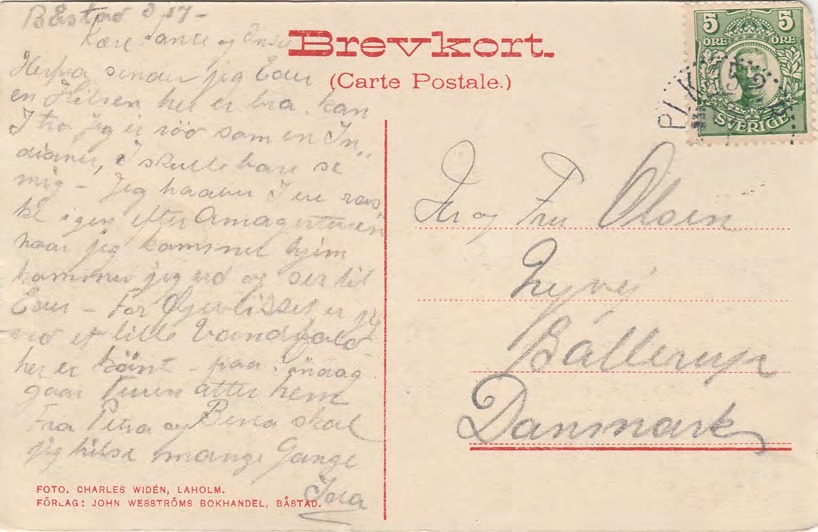 Båstad 3 17 -
Kære Tante og Onkel
Herfra sender jeg Eder
en Hilsen her er bra. kan
I tro jeg er röd som en In„
dianer, I skulle bare se
mig - Jeg haaber I er ras
ke igen efter Amagerturen
naar jeg kommer hjem
kommer jeg ud og ser til
Eder - For Øjeblikket er jeg
ved et lille Vandfald
her er känt - paa
gaar Turen atter hem
Fra Petra og skal
jeg hilse mange Gange
Brevkort.
(Carte Postale.)
5 5
ÖRE ÖRE
SVERIGE
PLK
Hr og Fru Olsen
Nyvej
Ballerup
Danmark
FOTO. CHARLES WIDÉN, LAHOLM.
FÖRLAG: JOHN WESSTRÖMS BOKHANDEL, BÅSTAD.